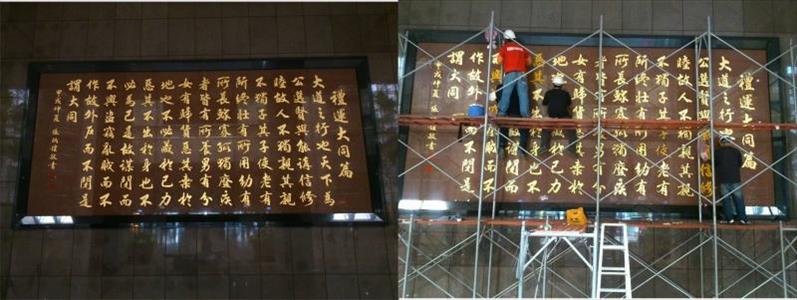 禮運大同篇
大道之行也天下為
公選賢與能講信修
睦故人不獨親其親
不獨子其子使老有
所終壯有所用幼有
所長鰥寡孤獨廢疾
者皆有所養男有分
女有歸貨惡其棄於
地也不必藏於己力
惡其不出於身也不
必為己是故謀閉而
不興盜竊亂賊而不
作故外戶而不閉是
謂大同
甲戌仲夏 張炳煌敬書
禮運大同篇
大道之行也
公選賢與能講信修
睦故人不獨親其親
不獨子其子使老有
所終壯有所用幼有
所長鰥寡孤獨廢疾
者皆有所養男有分
女有歸貨惡其棄於
地也不必藏於己力
惡其不出於身也不
閉而
賊而不
作故外戶而不閉是
謂大同